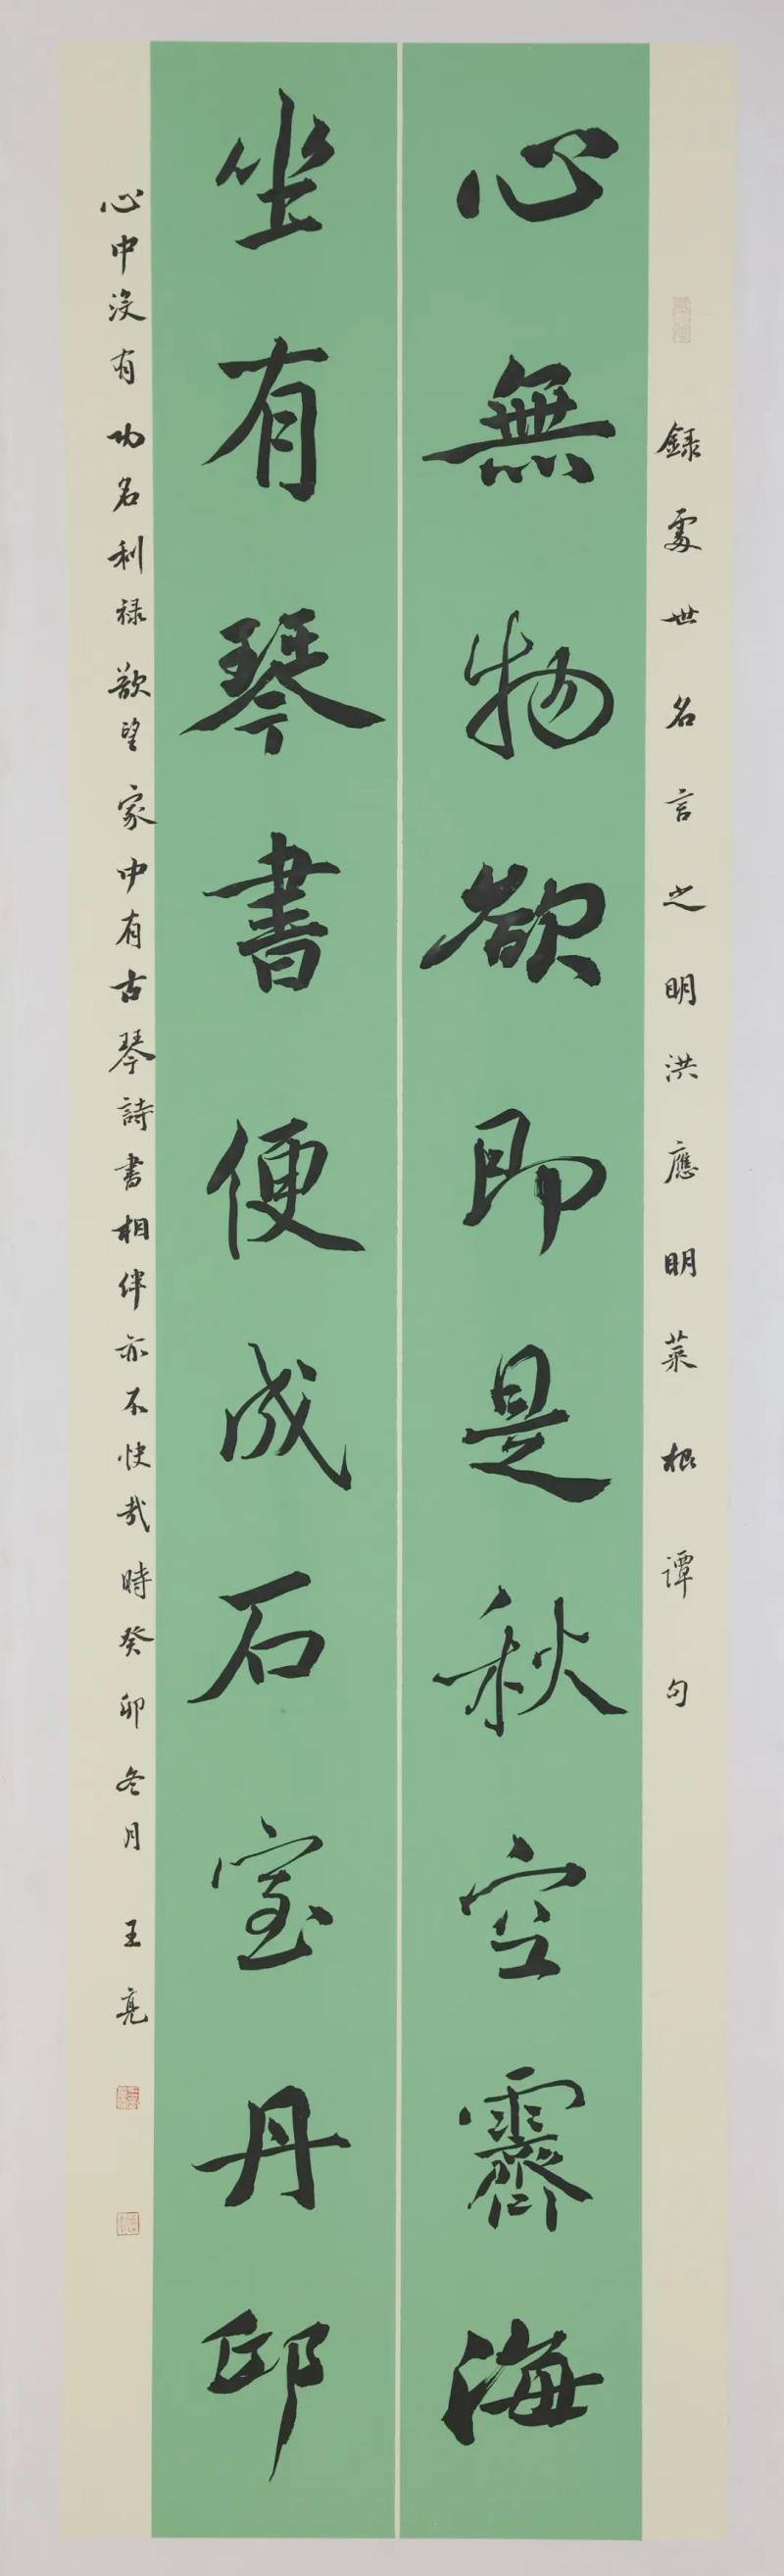 録處世名言之明洪應明菜根谭句
心無物欲即是秋空霽海
坐有琴書便成石室丹邱
心中没有功名利禄欲望家中有古琴詩書相伴亦不快哉時癸卯冬月王亮